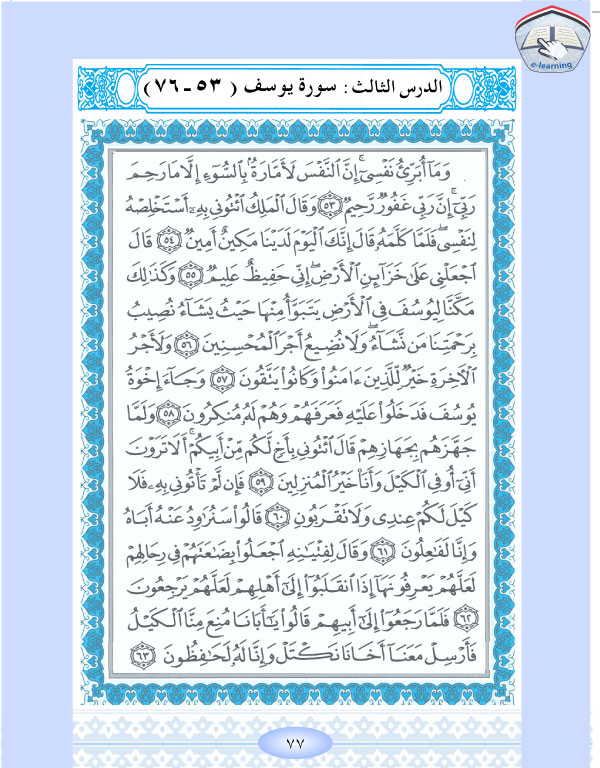 e-learning
الدرس الثالث : سورة يوسف ( ٥٣ - ٧٦ )
وَمَا أُبَرِّئُ نَفْسِي ۚ إِنَّ النَّفْسَ لَأَمَّارَةٌ بِالسُّوءِ إِلَّا مَا رَحِمَ
رَبِّي ۚ إِنَّ رَبِّي غَفُورٌ رَّحِيمٌ ٥٣ وَقَالَ الْمَلِكُ ائْتُونِي بِهِ أَسْتَخْلِصْهُ
لِنَفْسِي ۖ فَلَمَّا كَلَّمَهُ قَالَ إِنَّكَ الْيَوْمَ لَدَيْنَا مَكِينٌ أَمِينٌ ٥٤ قَالَ
اجْعَلْنِي عَلَىٰ خَزَائِنِ الْأَرْضِ ۖ إِنِّي حَفِيظٌ عَلِيمٌ ٥٥ وَكَذَٰلِكَ
مَكَّنَّا لِيُوسُفَ فِي الْأَرْضِ يَتَبَوَّأُ مِنْهَا حَيْثُ يَشَاءُ ۚ نُصِيبُ
بِرَحْمَتِنَا مَن نَّشَاءُ ۖ وَلَا نُضِيعُ أَجْرَ الْمُحْسِنِينَ ٥٦ وَلَأَجْرُ
الْآخِرَةِ خَيْرٌ لِّلَّذِينَ ءَامَنُوا وَكَانُوا يَتَّقُونَ ٥٧ وَجَاءَ إِخْوَةُ
يُوسُفَ فَدَخَلُوا عَلَيْهِ فَعَرَفَهُمْ وَهُمْ لَهُ مُنكِرُونَ ٥٨ وَلَمَّا
جَهَّزَهُم بِجَهَازِهِمْ قَالَ ائْتُونِي بِأَخٍ لَّكُم مِّنْ أَبِيكُمْ ۚ أَلَا تَرَوْنَ
أَنِّي أُوفِي الْكَيْلَ وَأَنَا خَيْرُ الْمُنزِلِينَ ٥٩ فَإِن لَّمْ تَأْتُونِي بِهِ فَلَا
كَيْلَ لَكُمْ عِندِي وَلَا تَقْرَبُونِ ٦٠ قَالُوا سَنُرَاوِدُ عَنْهُ أَبَاهُ
وَإِنَّا لَفَاعِلُونَ ٦١ وَقَالَ لِفِتْيَانِهِ اجْعَلُوا بِضَاعَتَهُمْ فِي رِحَالِهِمْ
لَعَلَّهُمْ يَعْرِفُونَهَا إِذَا انقَلَبُوا إِلَىٰ أَهْلِهِمْ لَعَلَّهُمْ يَرْجِعُونَ
٦٢ فَلَمَّا رَجَعُوا إِلَىٰ أَبِيهِمْ قَالُوا يَا أَبَانَا مُنِعَ مِنَّا الْكَيْلُ
فَأَرْسِلْ مَعَنَا أَخَانَا نَكْتَلْ وَإِنَّا لَهُ لَحَافِظُونَ ٦٣
٧٧